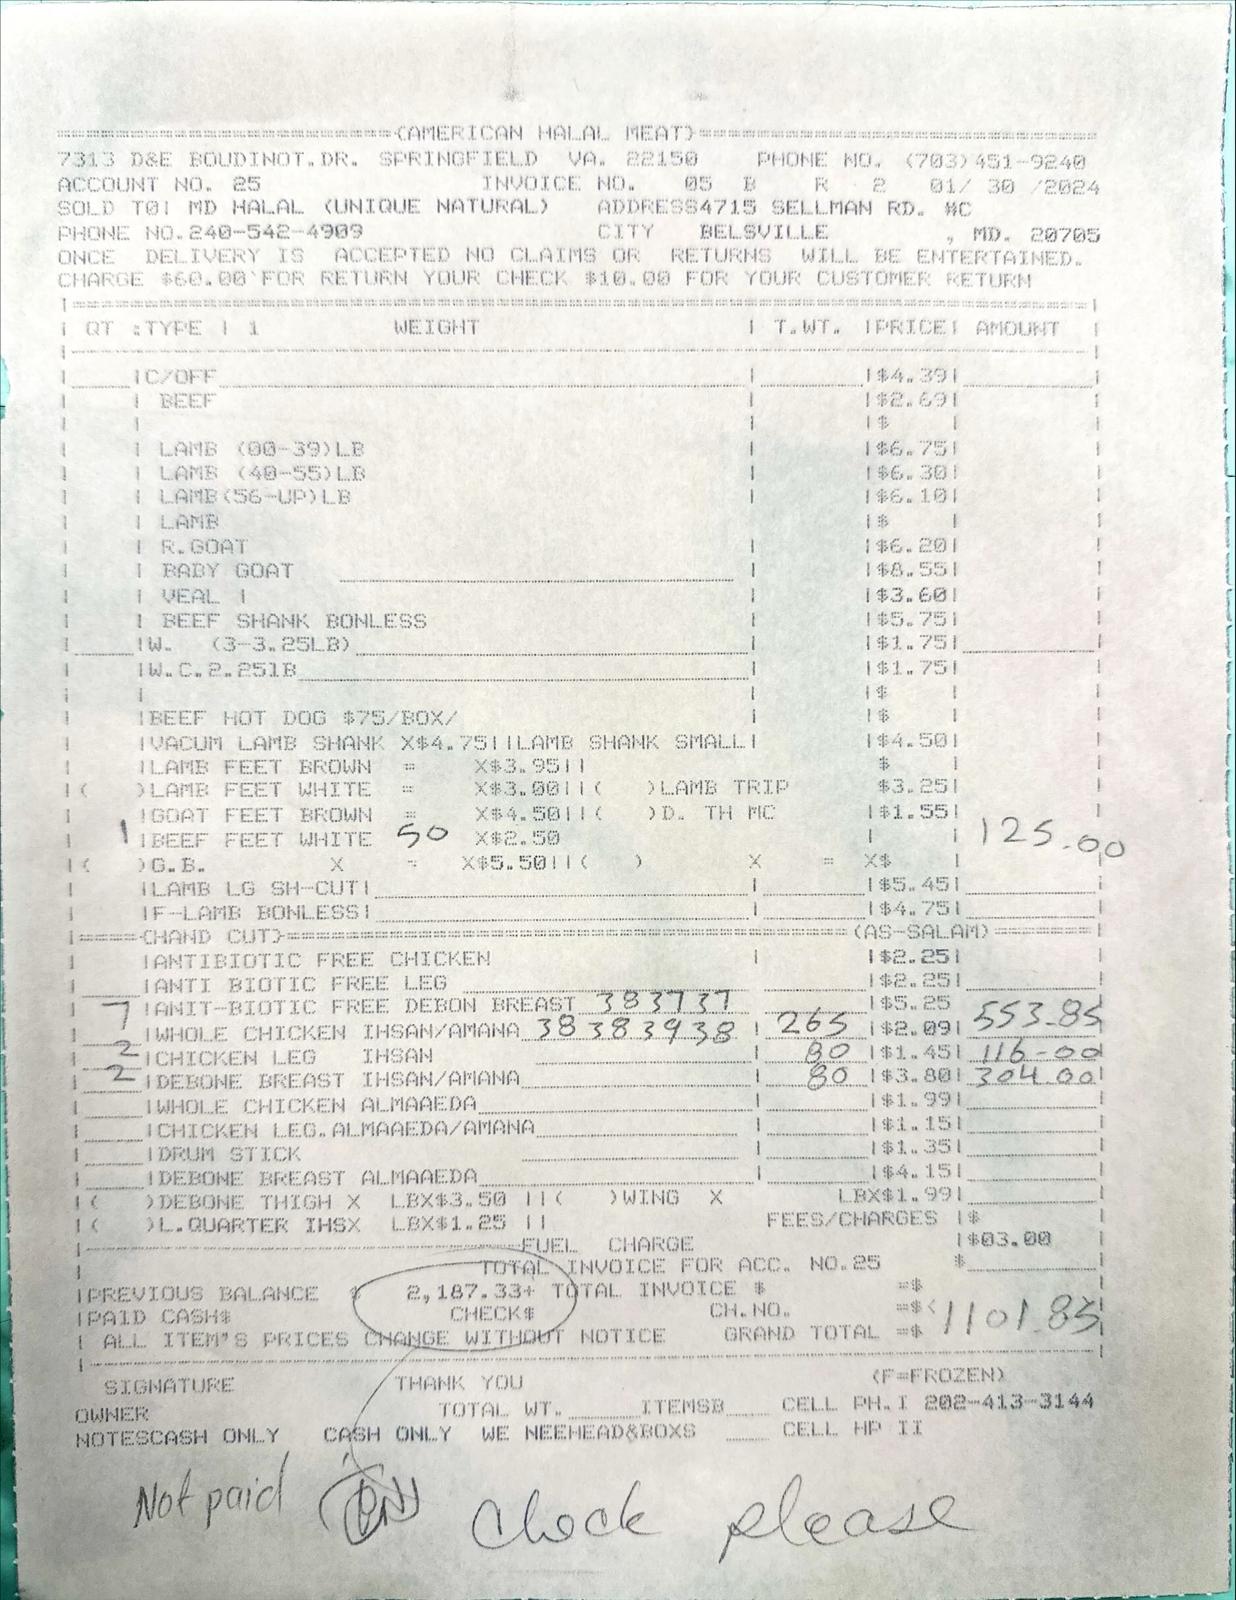 =========================={AMERICAN HALAL MEAT}==============================
7313 D&E BOUDINOT.DR. SPRINGFIELD VA. 22150 PHONE NO. (703)451-9240
ACCOUNT NO. 25 INVOICE NO. 05 B R 2 01/ 30 /2024
SOLD TO! MD HALAL (UNIQUE NATURAL) ADDRESS4715 SELLMAN RD. #C
PHONE NO.240-542-4909 CITY BELSVILLE , MD. 20705
ONCE DELIVERY IS ACCEPTED NO CLAIMS OR RETURNS WILL BE ENTERTAINED.
CHARGE $60.00 FOR RETURN YOUR CHECK $10.00 FOR YOUR CUSTOMER RETURN
QT :TYPE | 1 WEIGHT | T.WT. |PRICE| AMOUNT
|C/OFF | |$4.39|
| BEEF |$2.69|
|$
| LAMB (00-39)LB |$6.75|
| LAMB (40-55)LB |$6.30|
| LAMB(56-UP)LB |$6.10|
| LAMB |$ |
| R.GOAT |$6.20|
| BABY GOAT |$8.55|
| VEAL | |$3.60|
| BEEF SHANK BONLESS |$5.75|
|W. (3-3.25LB) |$1.75|
|W.C.2.25lB |$1.75|
|$ |
|BEEF HOT DOG $75/BOX/ |$ |
|VACUM LAMB SHANK X$4.75||LAMB SHANK SMALL| |$4.50|
|LAMB FEET BROWN = X$3.95|| $
|( )LAMB FEET WHITE = X$3.00||( )LAMB TRIP $3.25|
|GOAT FEET BROWN = X$4.50||( )D. TH MC |$1.55|
1 |BEEF FEET WHITE 50 X$2.50 | | 125.00
|( )G.B. X = X$5.50||( ) X = X$ |
|LAMB LG SH-CUT| |$5.45|
|F-LAMB BONLESS| |$4.75|
|====={HAND CUT}=====(AS-SALAM)=======|
|ANTIBIOTIC FREE CHICKEN |$2.25|
|ANTI BIOTIC FREE LEG |$2.25|
|ANIT-BIOTIC FREE DEBON BREAST 383737 |$5.25
7 |WHOLE CHICKEN IHSAN/AMANA 38383938 | 265 |$2.09| 553.85
2 |CHICKEN LEG IHSAN 80 |$1.45| 116-00
2 |DEBONE BREAST IHSAN/AMANA 80 |$3.80| 304.00
|WHOLE CHICKEN ALMAAEDA |$1.99|
|CHICKEN LEG.ALMAAEDA/AMANA |$1.15|
|DRUM STICK |$1.35|
|DEBONE BREAST ALMAAEDA |$4.15|
|( )DEBONE THIGH X LBX$3.50 ||( )WING X LBX$1.99|
|( )L.QUARTER IHSX LBX$1.25 || FEES/CHARGES |$
FUEL CHARGE |$03.00
TOTAL INVOICE FOR ACC. NO.25 $
|PREVIOUS BALANCE $ 2,187.33+ TOTAL INVOICE $ =$
|PAID CASH$ CHECK$ CH.NO. =$<
| ALL ITEM'S PRICES CHANGE WITHOUT NOTICE GRAND TOTAL =$ 1101.85
SIGNATURE THANK YOU (F=FROZEN)
OWNER TOTAL WT.______ITEMSB____ CELL PH.I 202-413-3144
NOTESCASH ONLY CASH ONLY WE NEEHEAD&BOXS ____ CELL HP II
Not paid check please